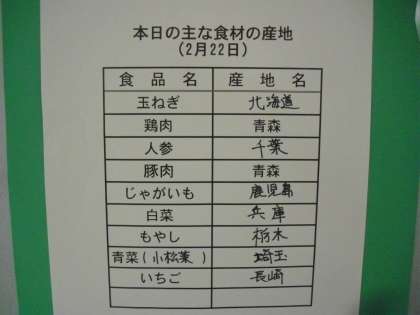 本日の主な食材の産地
(2月22日)
食品名 産地名
玉ねぎ 北海道
鶏肉 青森
人参 千葉
豚肉 青森
じゃがいも 鹿児島
白菜 兵庫
もやし 栃木
青菜(小松菜) 埼玉
いちご 長崎